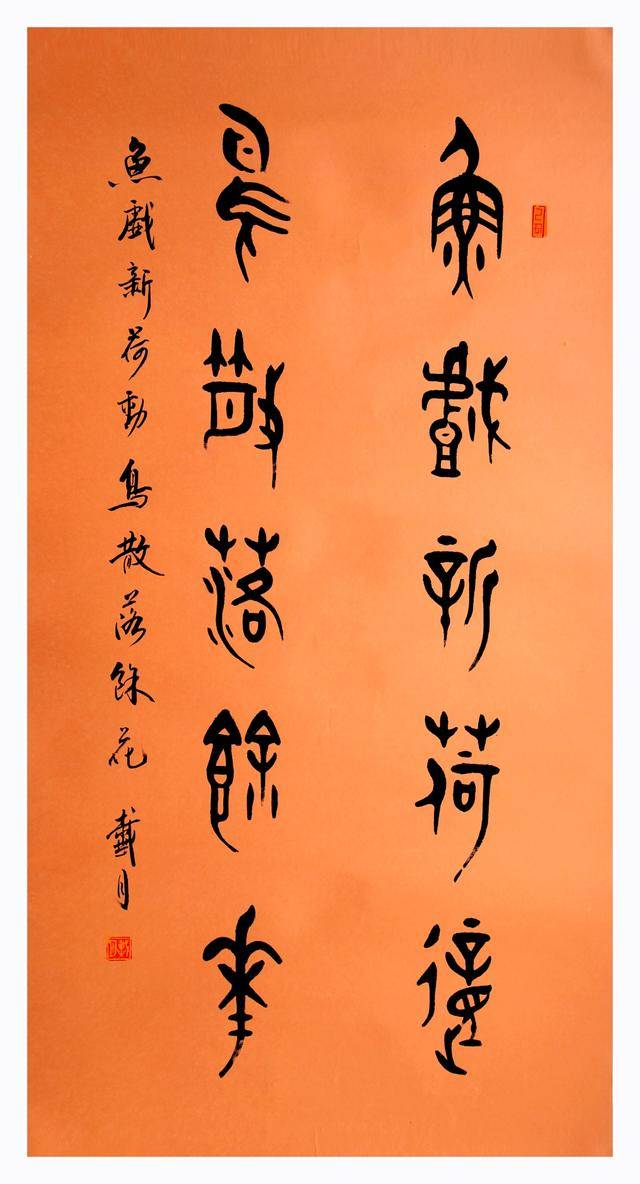 魚戲新荷動
鳥散落餘花
魚戲新荷動鳥散落餘花 戴月